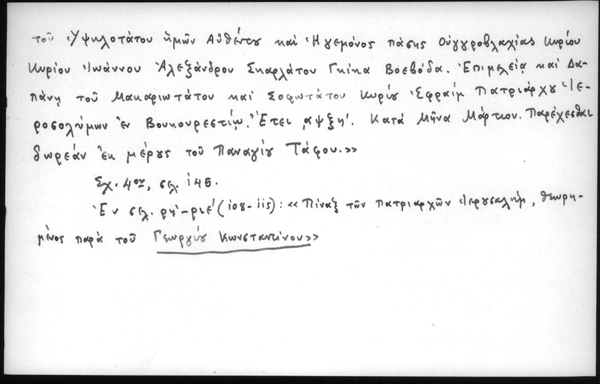 τοῦ Ὑψηλοτάτου ἡμῶν Αὐθέντου καὶ Ἡγεμόνος πάσης Οὑγγροβλαχίας Κυρίου
Κυρίου Ἰωάννου Ἀλεξάνδρου Σκαρλάτου Γκίκα Βοεβόδα. Ἐπιμελείᾳ καὶ Δα-
πάνῃ τοῦ Μακαριωτάτου καὶ Σοφωτάτου Κυρίου Ἐφραίμ Πατριάρχου Ἱε-
ροσολύμων Ἐν Βουκουρεστίῳ. Ἔτει ͵αψξη΄. Κατὰ Μῆνα Μάρτιον. Παρέχεσθαι
δωρεὰν ἐκ μέρους τοῦ Παναγίου Τάφου.»
Σχ. 4ον, σελ. 145.
Ἐν σελ. ρη΄-ριε΄ (108-115): «Πίναξ τῶν πατριαρχῶν Ἱερουσαλήμ, θεωρη-
μένος παρὰ τοῦ Γεωργίου Κωνσταντίνου»